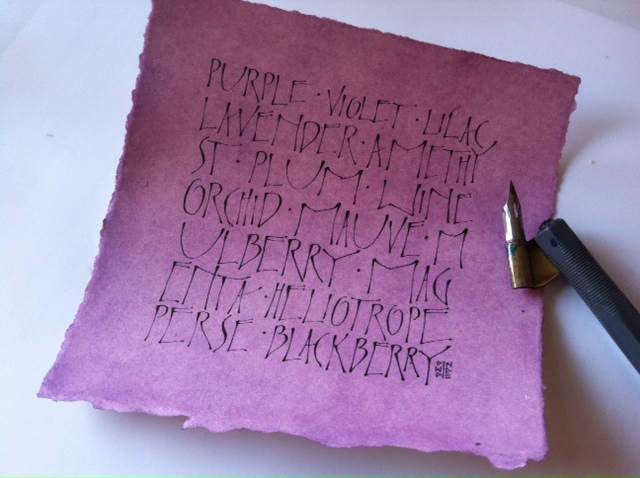 PURPLE · VIOLET · LILAC
LAVENDER · AMETHY
ST · PLUM · WINE
ORCHID · MAUVE · M
ULBERRY · MAG
ENTA · HELIOTROPE
PERSE · BLACKBERRY